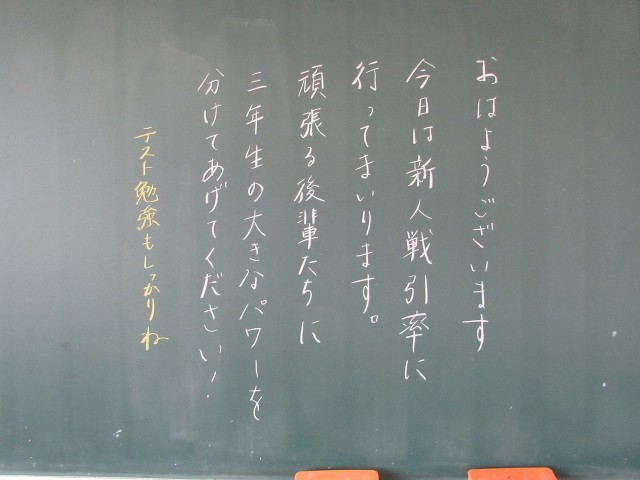 おはようございます
今日は新人戦引率に
行ってまいります。
頑張る後輩たちに
三年生の大きなパワーを
分けてあげてください!
テスト勉強もしっかりね